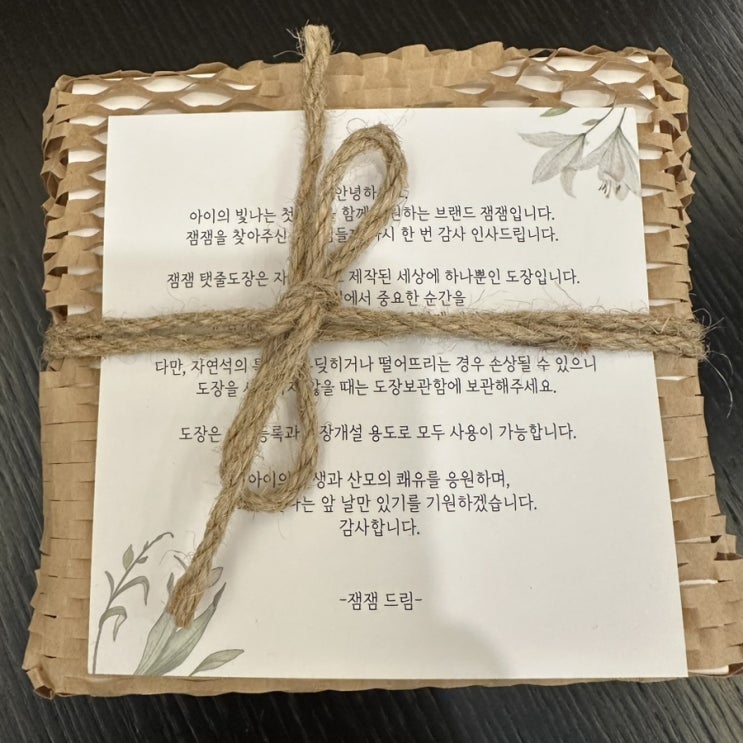 안녕하
아이의 빛나는 첫 함께 원하는 브랜드 잼잼입니다.
잼잼을 찾아주신 한 번 감사 인사드립니다.
잼잼 탯줄도장은 제작된 세상에 하나뿐인 도장입니다.
에서 중요한 순간을
다만, 자연석의 딪히거나 떨어뜨리는 경우 손상될 수 있으니
도장을 않을 때는 도장보관함에 보관해주세요.
도장은 등록과 장개설 용도로 모두 사용이 가능합니다.
아이의 생과 산모의 쾌유를 응원하며,
나는 앞 날만 있기를 기원하겠습니다.
감사합니다.
-잼잼 드림-